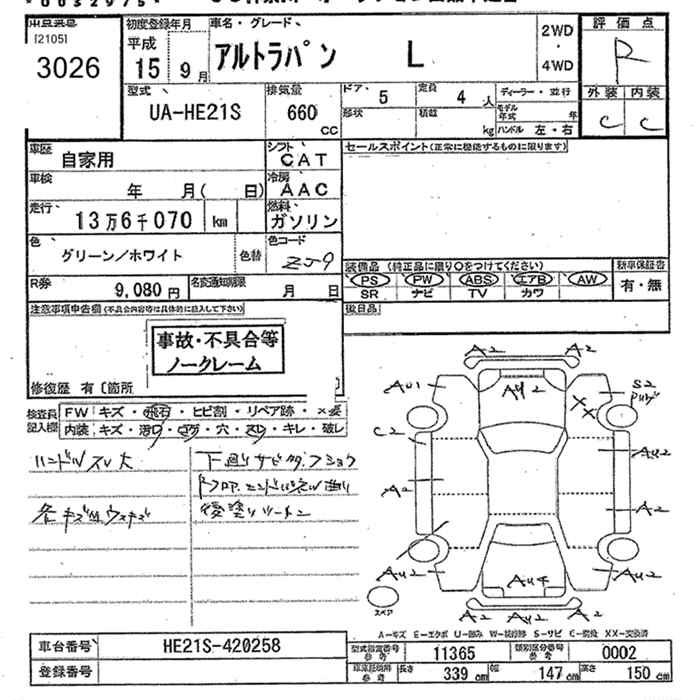 [2105]
3026
初度登録年月
平成
15 年 9 月
車名・グレード
アルトラパン L
2WD
・
4WD
評価点
R
外装 内装
C C
型式
UA-HE21S
排気量
660
cc
ドア 5
形状
定員 4 人
積載 kg
ディーラー・並行
モデル年式 年
ハンドル 左・右
車歴
自家用
シフト
CAT
車検
年 月( 日)
冷房
AAC
走行
13万6千070 km
燃料
ガソリン
色
グリーン/ホワイト
色替
色コード
Z59
R券
9,080 円
名変通知期限
月 日
セールスポイント(正常に機能するものに限ります)
装備品 (純正品に限り○をつけてください)
PS PW ABS エアB AW
SR ナビ TV カワ
新車保証書
有・無
後日品
注意事項申告欄(不具合内容等は具体的に記入して下さい)
事故・不具合等
ノークレーム
修復歴 有〔箇所
検査員
記入欄
FW キズ・飛石・ヒビ割・リペア跡・×要
内装 キズ・汚レ・コゲ・穴・スレ・キレ・破レ
ハンドルスレ大
下廻りサビ
A2 A2
AU1
AU2
S2
XX
C2
AU2
A2
A2
AU2
AU4
AU2
スペア
A2 A2
A-キズ E-エクボ U-凹み W-補修跡 S-サビ C-腐蝕 XX-交換済
車台番号
HE21S-420258
登録番号
型式指定番号
参考
11365
類別区分番号
参考
0002
車庫証明用
参考
長さ 339 cm
幅 147 cm
高さ 150 cm